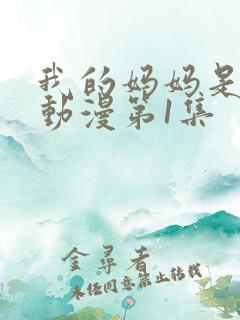 我的妈妈是
動漫第1集
金尋者
未经同意禁止转载